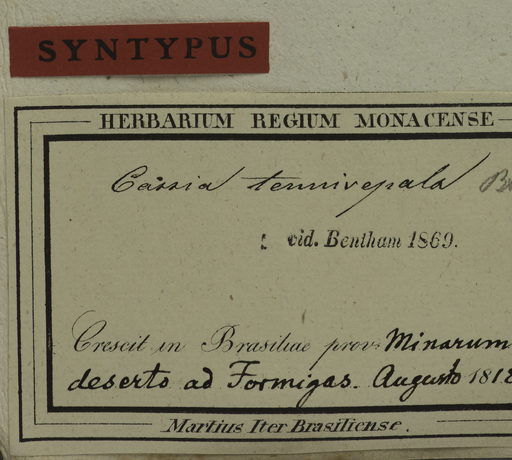 SYNTYPUS
HERBARIUM REGIUM MONACENSE
Cassia tenuisepala
vid. Bentham 1869.
Crescit in Brasiliae prov. Minarum
deserto ad Formigas. Augusto 1818
Martius Iter Brasiliense.